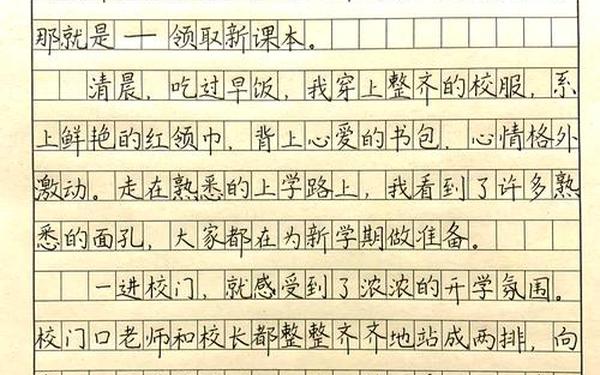 那就是 — 领取新课本。
清晨，吃过早饭，我穿上整齐的校服，系
上鲜艳的红领巾，背上心爱的书包，心情格外
激动。走在熟悉的上学路上，我看到了许多熟
悉的面孔，大家都在为新学期做准备。
一进校门，就感受到了浓浓的开学氛围。
校门口老师和校长都整整齐齐地站成两排，向